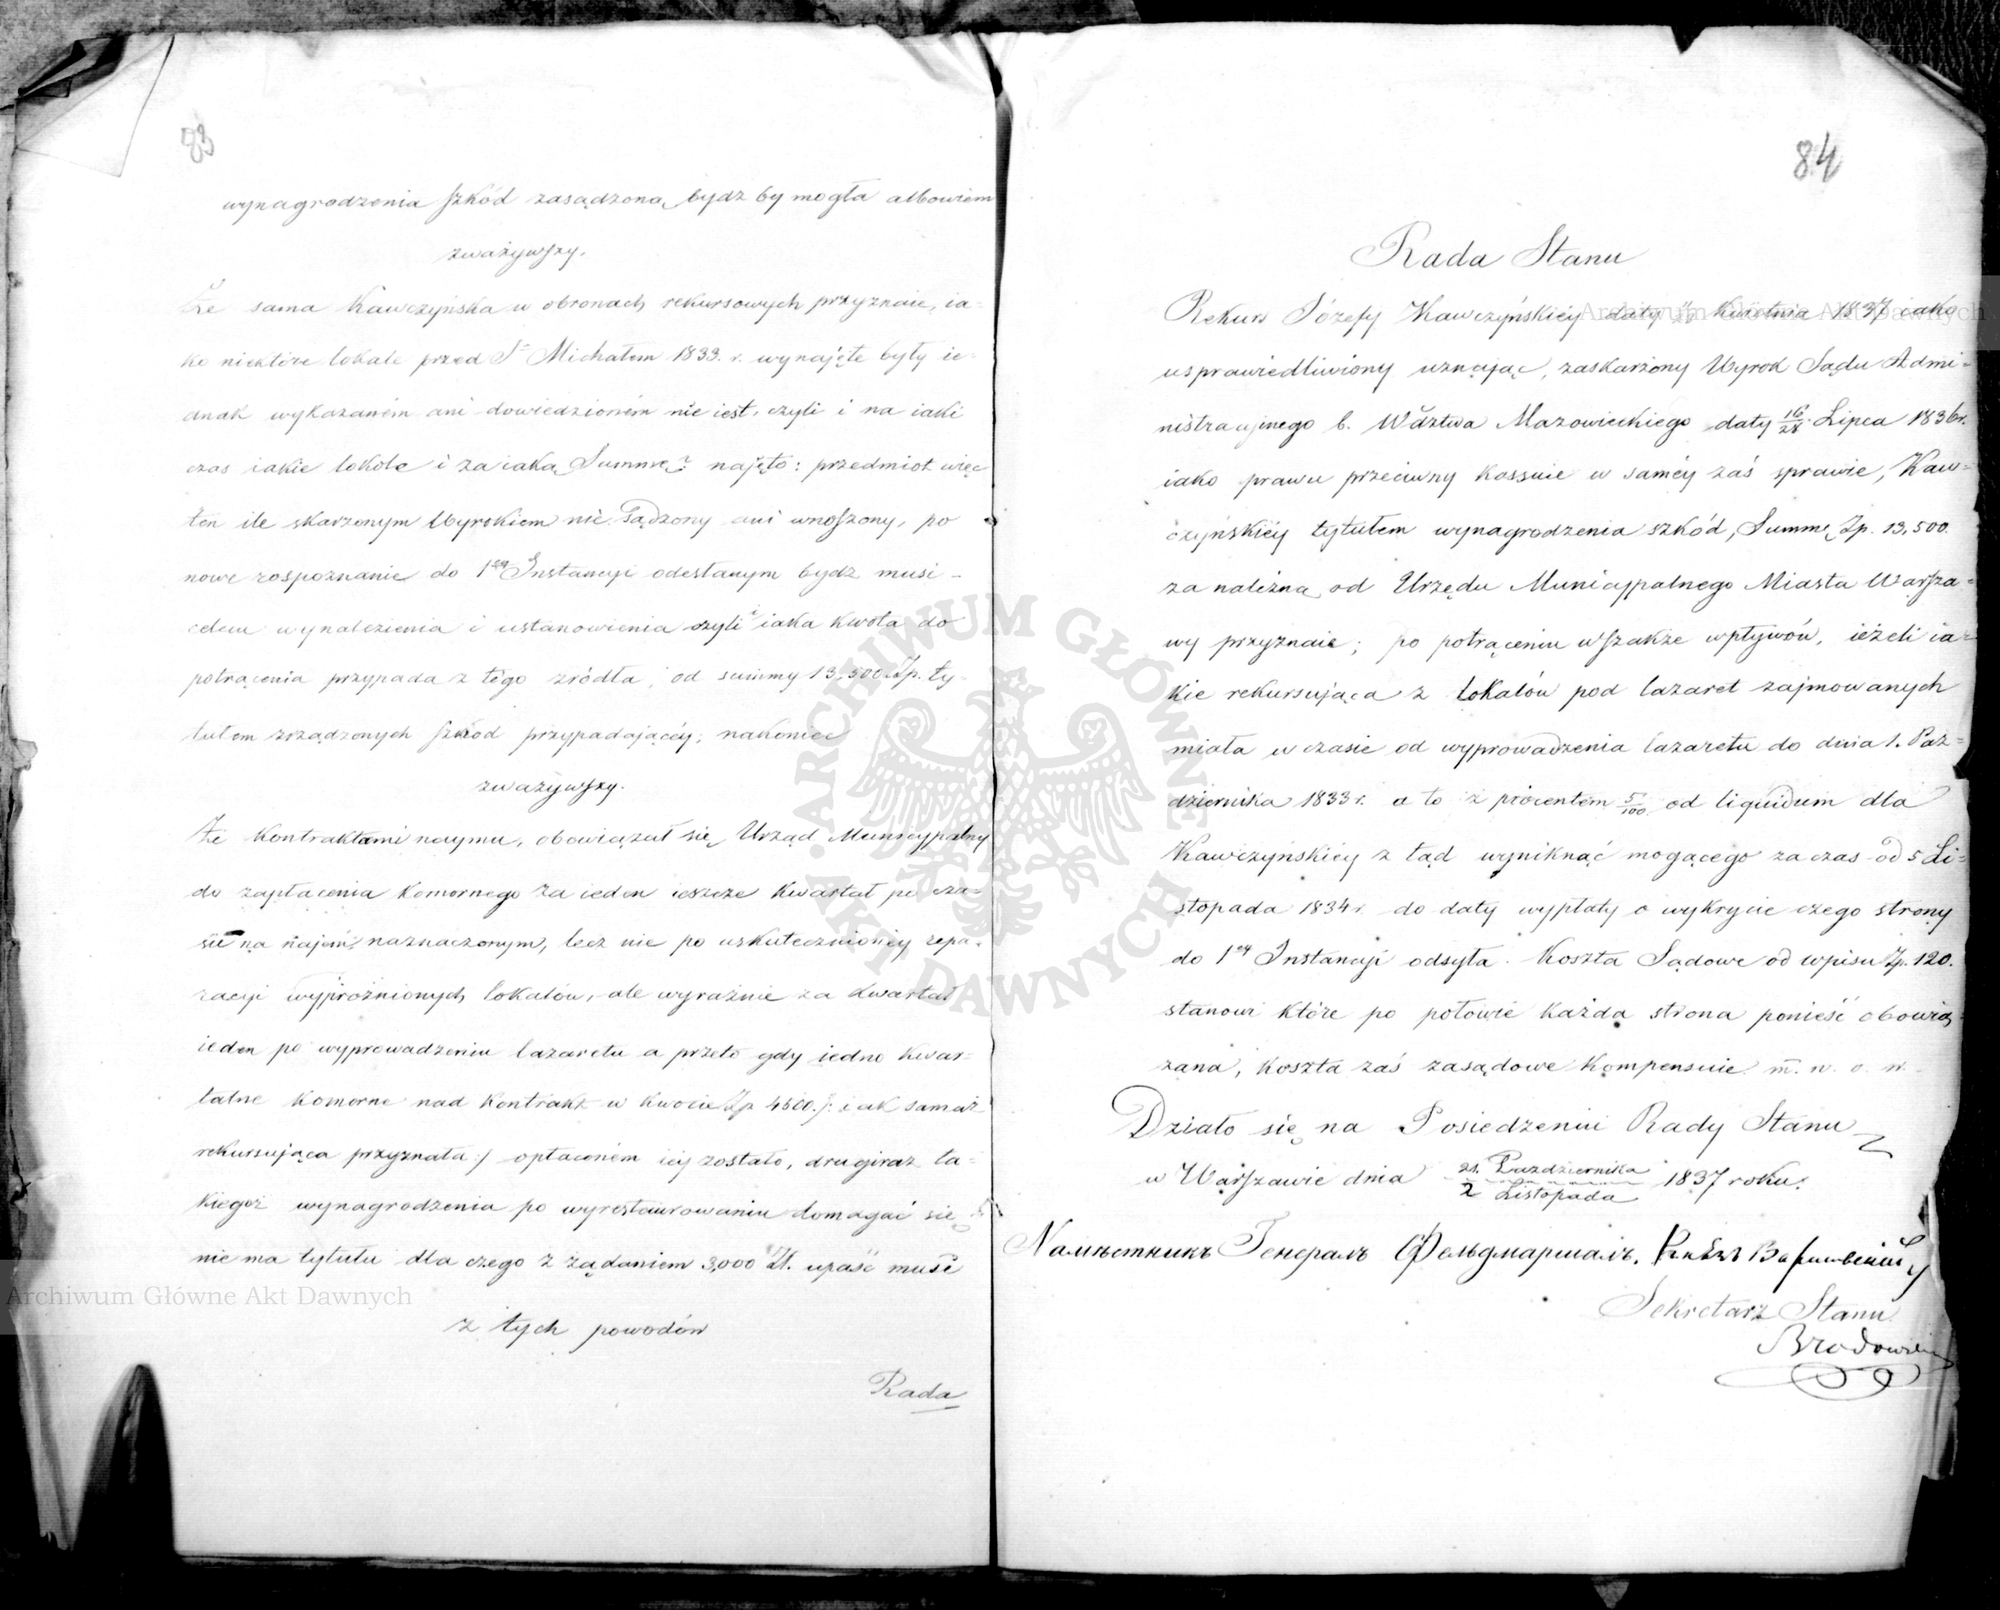 83
wynagrodzenia szkód zasądzoną bydz by mogła albowiem
zważywszy.
Że sama Kawczyńska w obronach rekursowych przyznaie, ia-
ko niektóre lokale przed St Michałem 1833. r. wynajęte były ie-
dnak wykazaném ani dowiedzioném nie iest, czyli i na iaki
czas iakie lokale i za iaką Summę najęto: przedmiot więc
ten ile skarżonym Wyrokiem nie sądzony ani wnoszony, po
nowe rozpoznanie do 1ey Instancyi odesłanym bydz musi -
celem wynalezienia i ustanowienia czyli i iaka kwota do
potrącenia przypada z tego zródła, od summy 13,500 Zp. ty-
tułem zrządzonych szkód przypadającéy; nakoniec
zważywszy.
Że Kontraktami naymu, obowiązał się Urząd Municypalny
do zapłacenia Komornego za ieden ieszcze Kwartał po cza-
sie na najem naznaczonym, lecz nie po uskutecznionéy repa-
racyi wypróżnionych lokalów, ale wyraźnie za kwartał
ieden po wyprowadzeniu lazaretu a przeto gdy iedno Kwar-
talne Komorne nad Kontrakt w kwocie Zp 4500. /: iak sama
rekursująca przyznała :/ opłaconém iéy zostało, drugi raz ta-
kiegoż wynagrodzenia po wyrestaurowaniu domagać się
nie ma tytułu dla czego z żądaniem 3,000 Zł. upaść musi
z tych powodów
Rada
84
Rada Stanu
Rekurs Józefy Kawczyńskiéy daty Kwietnia 1837 iako
usprawiedliwiony uznając, zaskarżony Wyrok Sądu Admi-
nistracyjnego b. Wdztwa Mazowieckiego daty 16/28 Lipca 1836 r.
iako prawu przeciwny kassuie w saméy zaś sprawie, Kaw-
czyńskiéy tytułem wynagrodzenia szkód, Summę Zp. 13,500.
za należną od Urzędu Municypalnego Miasta Warsza-
wy przyznaie; po potrąceniu wszakże wpływów, ieżeli ia-
kie rekursująca z lokalów pod lazaret zajmowanych
miała w czasie od wyprowadzenia lazaretu do dnia 1. Paź-
dziernika 1833 r. a to z procentem 5/100 od liquidum dla
Kawczyńskiéy z tąd wyniknąć mogącego za czas od 5 Li-
stopada 1834 r. do daty wypłaty o wykrycie czego strony
do 1ey Instancyi odsyła. Koszta Sądowe od wpisu Zp. 120.
stanowi które po połowie każda strona ponieść obowią-
zana, koszta zaś zasądowe kompensuie m. n. o. n.
Działo się na Posiedzeniu Rady Stanu
w Warszawie dnia 21. Października / 2 Listopada 1837 roku.
Намѣстникъ Генералъ Фельдмаршалъ, Князь Варшавскій
Sekretarz Stanu
Brodowski
ARCHIWUM GŁÓWNE AKT DAWNYCH
Archiwum Główne Akt Dawnych
Archiwum Główne Akt Dawnych